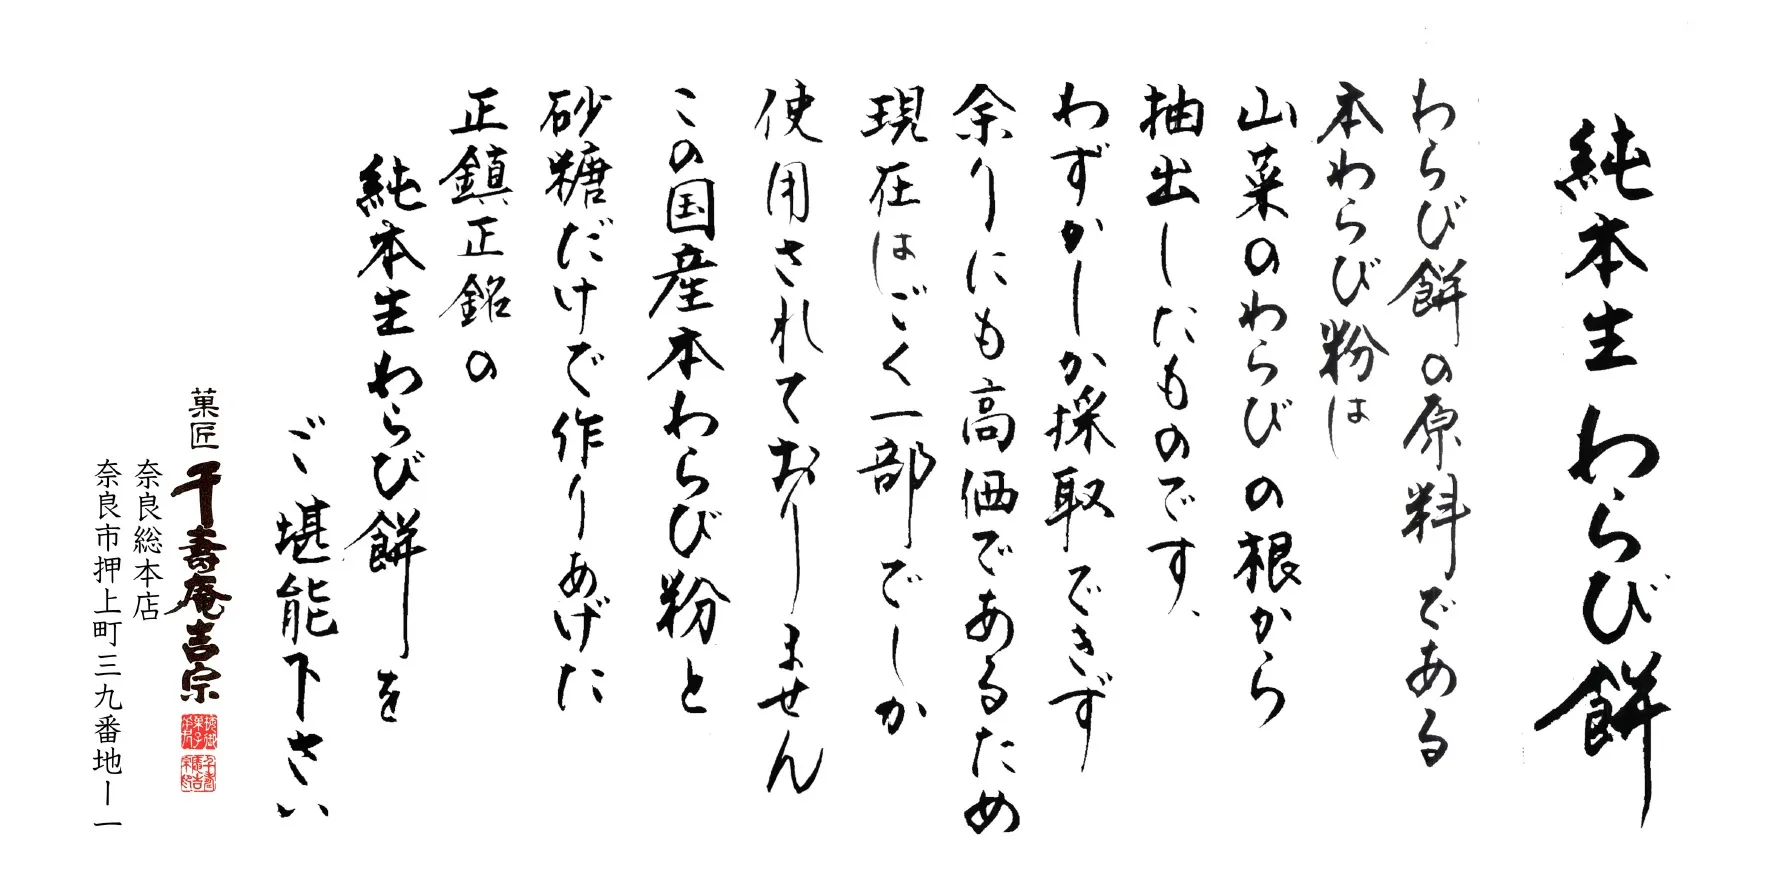 純本生わらび餅
わらび餅の原料である
本わらび粉は
山菜のわらびの根から
抽出したものです、
わずかしか採取できず
余りにも高価であるため
現在はごく一部でしか
使用されておりません
この国産本わらび粉と
砂糖だけで作りあげた
正鎮正銘の
純本生わらび餅を
ご堪能下さい
菓匠 千壽庵吉宗
奈良総本店
奈良市押上町三九番地ー一